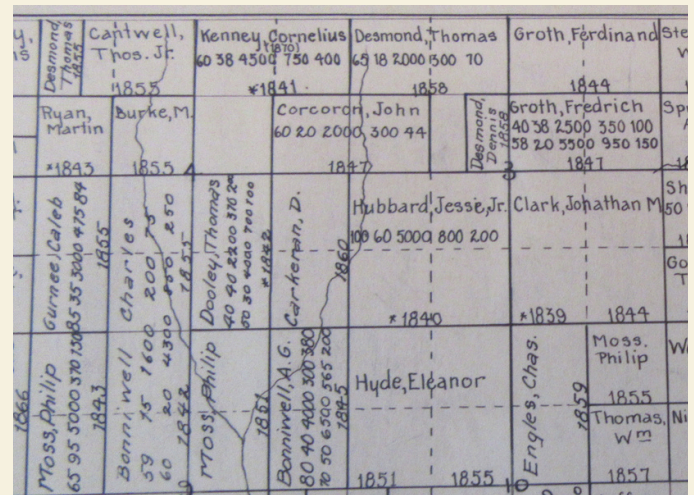 Desmond,
Thomas
1855
Cantwell,
Thos. Jr.
1855
Kenney, Cornelius
(1870)
60 38 4500 750 400
*1841
Desmond, Thomas
65 18 2000 300 70
1858
Groth, Ferdinand
1844
Ste
Ryan,
Martin
*1843
Burke, M.
1855
Corcoran, John
60 20 2000 300 44
1847
Desmond,
Dennis
1858
Groth, Fredrich
40 38 2500 350 100
58 20 5500 950 150
1847
Sp
Gurnee, Caleb
85 35 3000 475 84
1855
Bonniwell Charles
59 15 1600 200 75
60 20 4300 550 250
1842 1855
Dooley, Thomas
40 40 2200 370 2
60 30 4000 700 100
*1842
Carkeran, D.
1860
Hubbard, Jesse, Jr.
100 60 5000 800 200
*1840
Clark, Jonathan M
*1839
1844
Sh
50
Go
T
1866
Moss, Philip
65 95 5000 370 130
1843
Moss, Philip
1851
Bonniwell, A.G.
80 40 4000 300 380
70 50 6500 565 200
1845
Hyde, Eleanor
1851
1855
Engles, Chas.
1859
Moss.
Philip
1855
Thomas,
Wm
1857
Ni